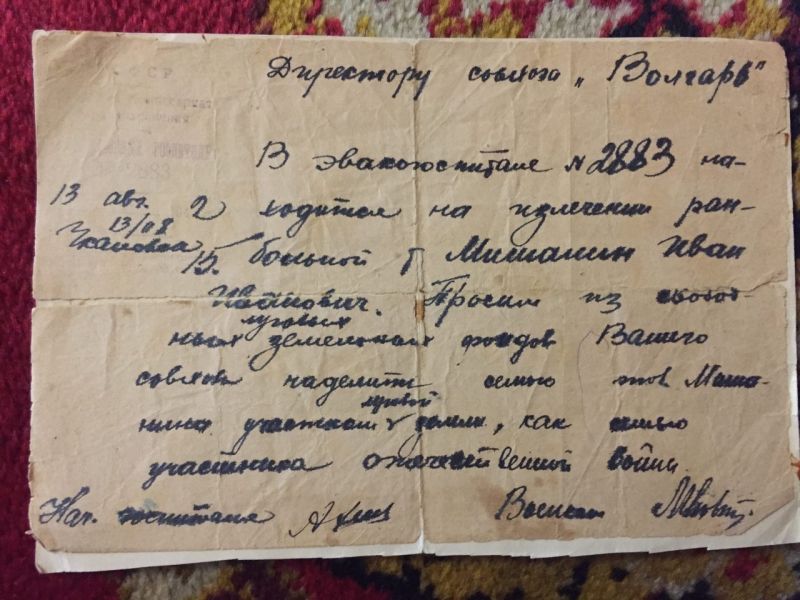 Директору совхоза „Волгарь"
ССР
2883
В эвакогоспитале № 2883 на-
13 авг. 2 ходится на излечении ран-
13/VIII
15. больной т Мишанин Иван
Иванович. Просим из свобод-
луговых
ных земельных фондов Вашего
совхоза наделить семью тов Миша-
луговой
нина участком земли, как семью
участника отечественной войны.
Нач. госпиталя Военком